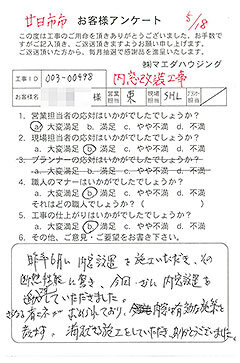 廿日市市 お客様アンケート 5/18
この度は工事のご用命を頂きありがとうございました。お手数で
すがご記入頂き、ご返送頂きますようお願い申し上げます。
ご返送頂いた方から、毎月抽選で感謝品を進呈いたします。
㈱マエダハウジング
工事ID 003-00498 内窓改装工事
お客様名 様 営業担当 東 現場担当 SHL プランナー担当
1. 営業担当者の応対はいかがでしたでしょうか?
a. 大変満足 b. 満足 c. やや不満 d. 不満
2. 現場担当者の応対はいかがでしたでしょうか?
a. 大変満足 b. 満足 c. やや不満 d. 不満
3. プランナーの応対はいかがでしたでしょうか?
a. 大変満足 b. 満足 c. やや不満 d. 不満
4. 職人のマナーはいかがでしたでしょうか?
a. 大変満足 b. 満足 c. やや不満 d. 不満
それはどの職人でしょうか?( )
5. 工事の仕上がりはいかがでしたでしょうか?
a. 大変満足 b. 満足 c. やや不満 d. 不満
6. その他、ご意見・ご要望をお書き下さい。
昨年6月に内窓設置を施工いただき、その
断熱性能に驚き、今回、さらに内窓設置を
していただきました。
さらなる省エネが 内窓は有効な施策と
言えます。満足な施工をしていただき、ありがとうございました。